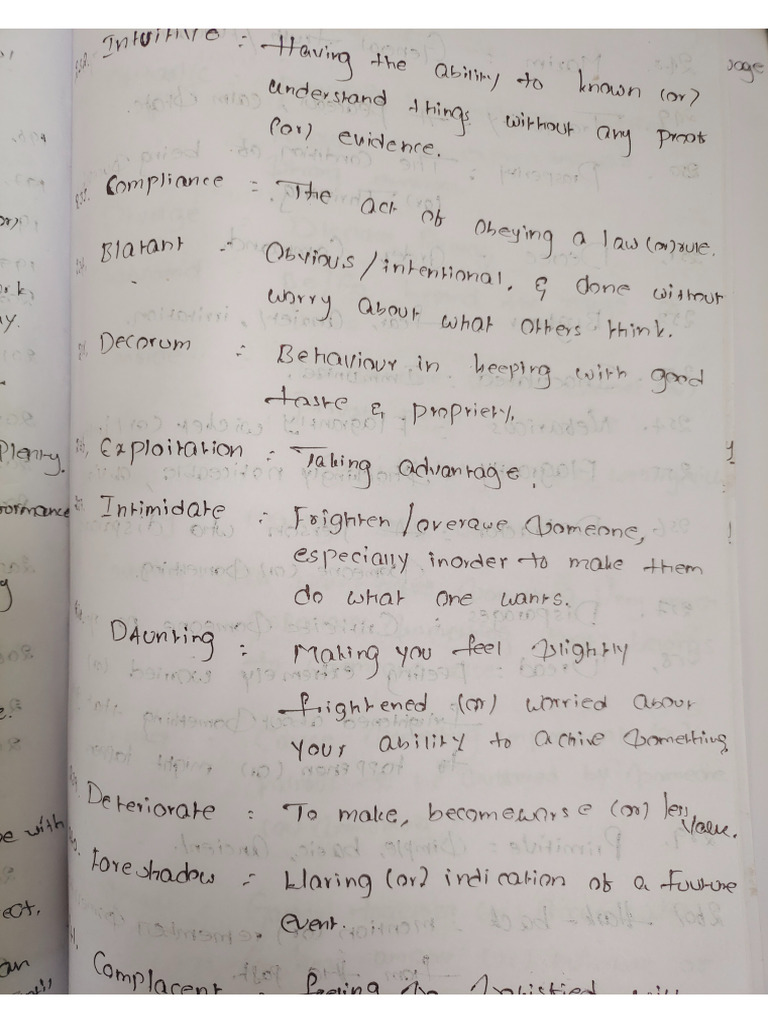 Intuitive : Having the ability to known (or)
understand things without any proof
(or) evidence.
Compliance : The act of obeying a law (or) rule.
Blatant : Obvious / intentional, & done without
worry about what others think.
Decorum : Behaviour in keeping with good
taste & propriety.
Exploitation : Taking advantage.
Intimidate : Frighten / overawe Someone,
especially inorder to make them
do what one wants.
DAunting : Making you feel slightly
frightened (or) worried about
your ability to achive Something
Deteriorate : To make, become worse (or) less
value.
Foreshadow : (or) indication of a future
event.
Complacent :
Plenty.
formance
e with
ect.